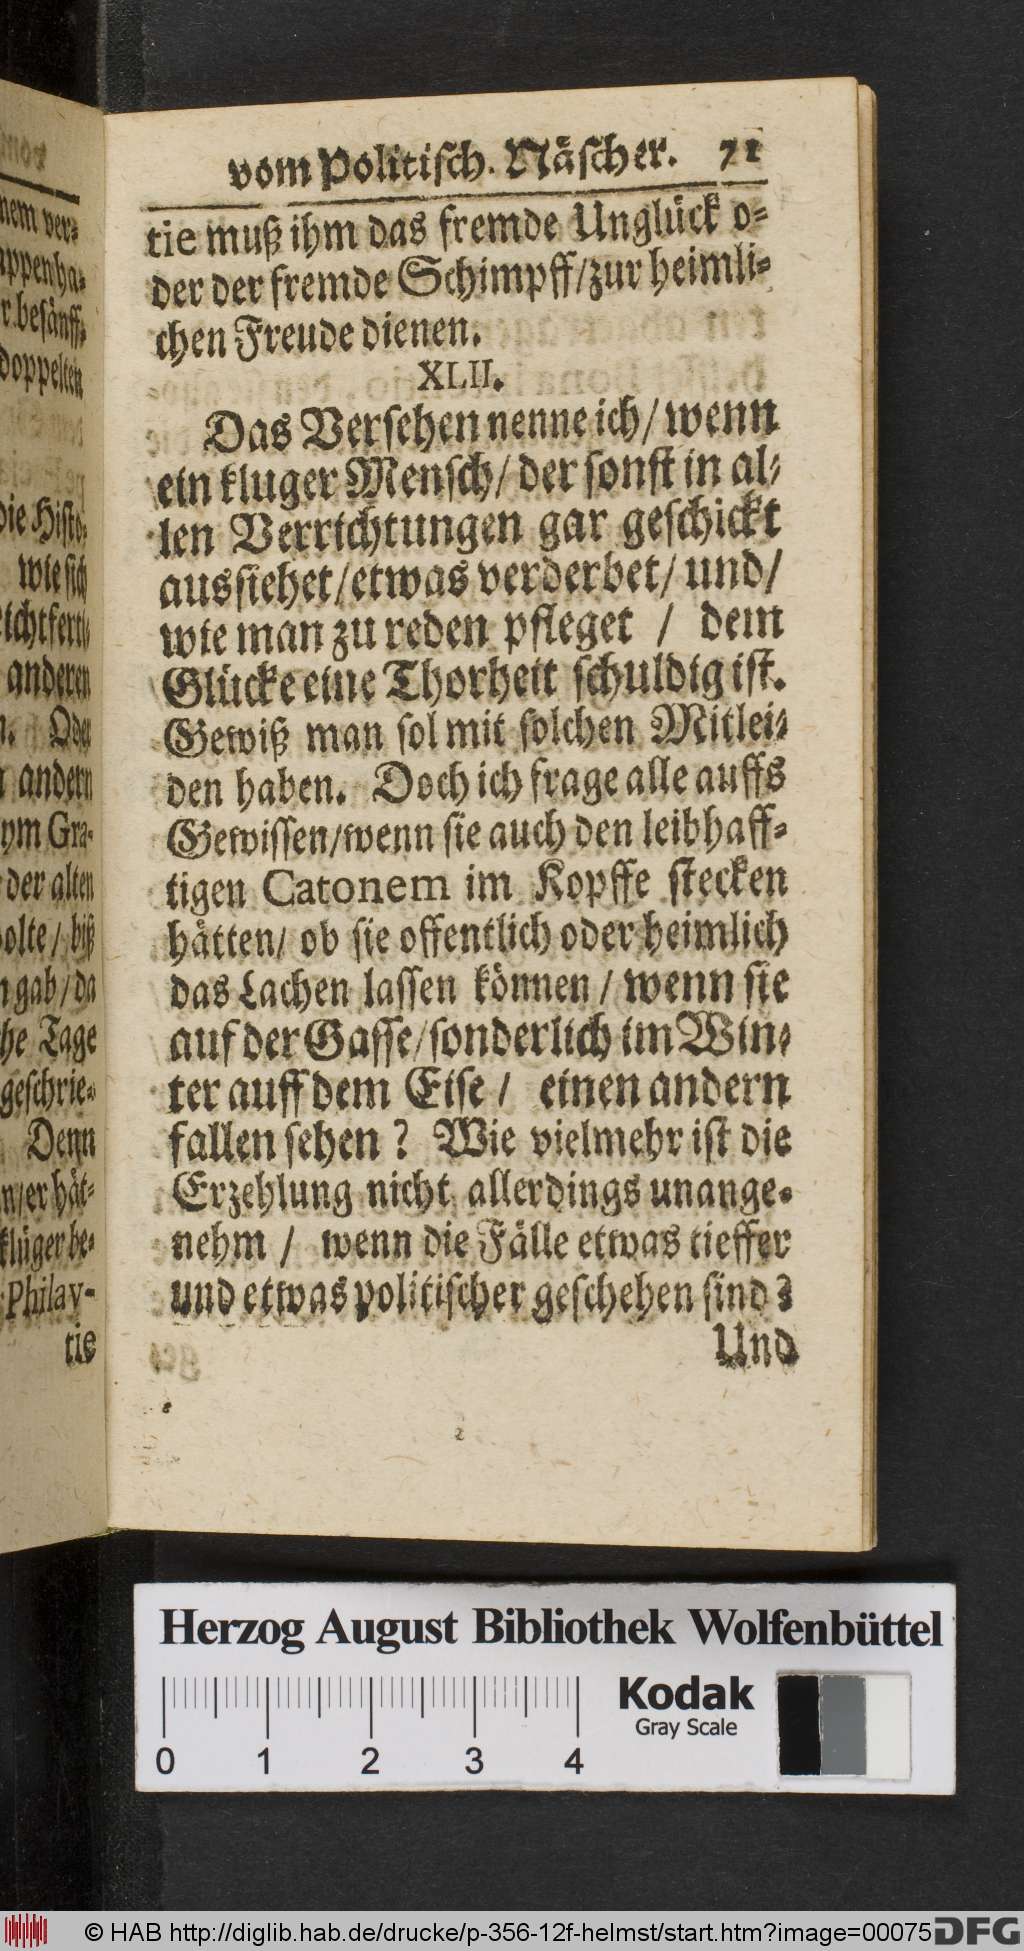 nem ver-
appen ha-
r. besänff-
doppelten
die Histo-
wie sich
anderen
n. Oder
n andern
ym Gra-
der alten
olte / biß
n gab / da
he Tage
geschrie-
Denn
n / er hät-
klüger be-
Philav-
tie
vom Politisch. Näscher. 71
tie muß ihm das fremde Unglück o-
der der fremde Schimpff / zur heimli-
chen Freude dienen.
XLII.
Das Versehen nenne ich / wenn
ein kluger Mensch / der sonst in al-
len Verrichtungen gar geschickt
aussiehet / etwas verderbet / und /
wie man zu reden pfleget / dem
Glücke eine Thorheit schuldig ist.
Gewiß man sol mit solchen Mitlei-
den haben. Doch ich frage alle auffs
Gewissen / wenn sie auch den leibhaff-
tigen Catonem im Kopffe stecken
hätten / ob sie offentlich oder heimlich
das Lachen lassen können / wenn sie
auf der Gasse / sonderlich im Win-
ter auff dem Eise / einen andern
fallen sehen? Wie vielmehr ist die
Erzehlung nicht allerdings unange-
nehm / wenn die Fälle etwas tieffer
und etwas politischer geschehen sind?
Und
Herzog August Bibliothek Wolfenbüttel
Kodak
Gray Scale
0 1 2 3 4
© HAB http://diglib.hab.de/drucke/p-356-12f-helmst/start.htm?image=00075
DFG